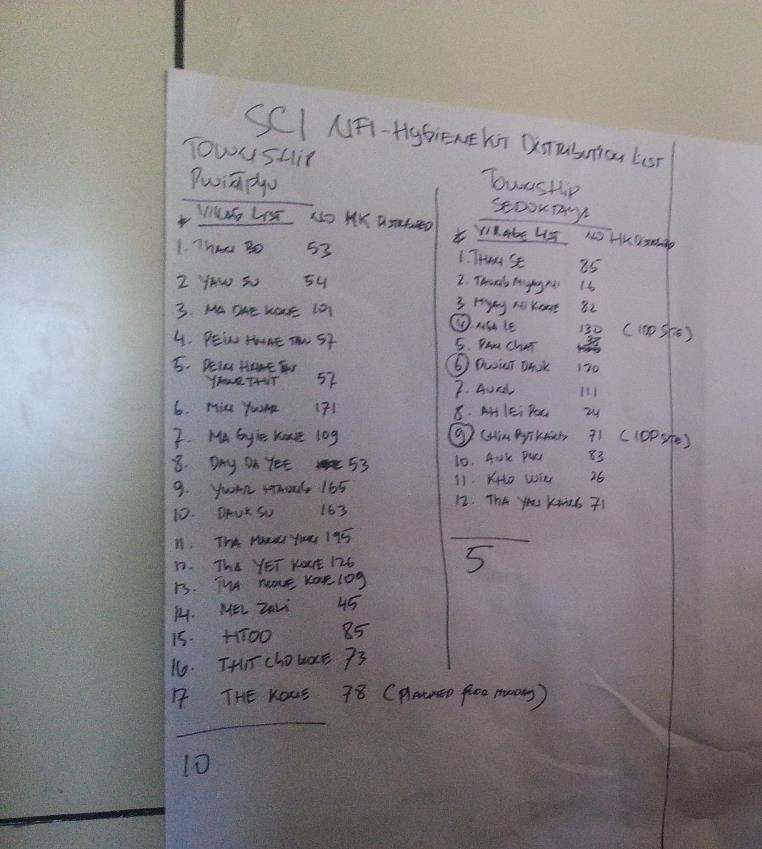 SCI NFI-HYGIENE KIT DISTRIBUTION LIST
TOWNSHIP
PWINTPYU
* VILLAGE LIST NO HK DISTRIBUTED
1. THAN BO 53
2 YAW SU 54
3. MA DAE KONE 101
4. PEIN HNAE TAW 57
5. PEIN HNAE TAW
YAWR THIT 57
6. MIN YWAR 171
7. MA GYIE KONE 109
8. DAY DA YEE 53
9. YWAR HTAUNG 165
10. DAUK SU 163
11. THA 195
12. THA YET KONE 126
13. THA KONE 109
14. MEL ZALI 45
15. HTOO 85
16. THIT CHO KONE 73
17 THE KONE 78 (PLANNED FOR MONDAY)
10
TOWNSHIP
SEDOKTAYA
* VILLAGE LIST NO HK DISTRIBUTED
1. THAN SE 85
2. 16
3 MYAY NI KONE 82
4. NGA LE 130 (IDP SITE)
5. PAN CHAT 38
6. PWINT DAUK 120
7. 111
8. AH LEI PON 24
9. 71 (IDP SITE)
10. AUK PON 83
11. KHO WIN 26
12. THA YAW KAING 71
5